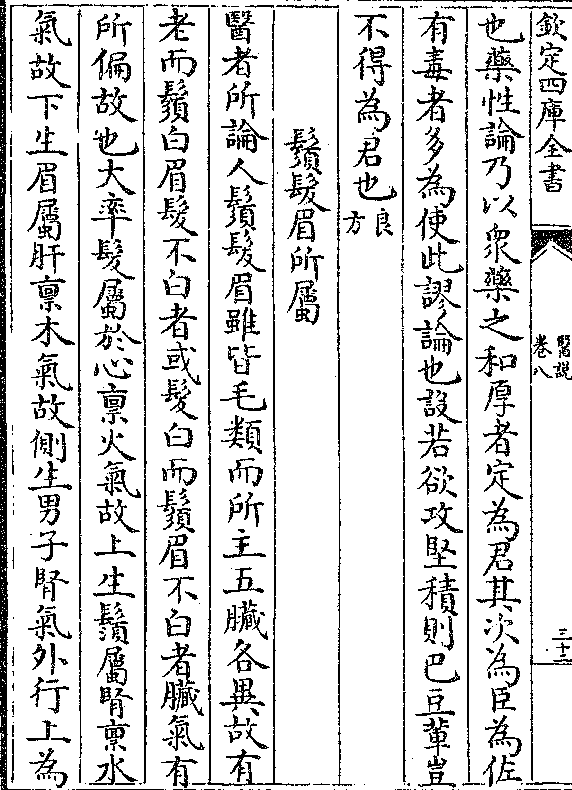 欽定四庫全書
醫說
卷八
三十三
也藥性論乃以衆藥之和厚者定為君其次為臣為佐
有毒者多為使此謬論也設若欲攻堅積則巴豆輩豈
不得為君也良方
鬚髮眉所屬
醫者所論人鬚髮眉雖皆毛類而所主五臟各異故有
老而鬚白眉髮不白者或髮白而鬚眉不白者臟氣有
所偏故也大率髮屬於心稟火氣故上生鬚屬腎稟水
氣故下生眉屬肝稟木氣故側生男子腎氣外行上為